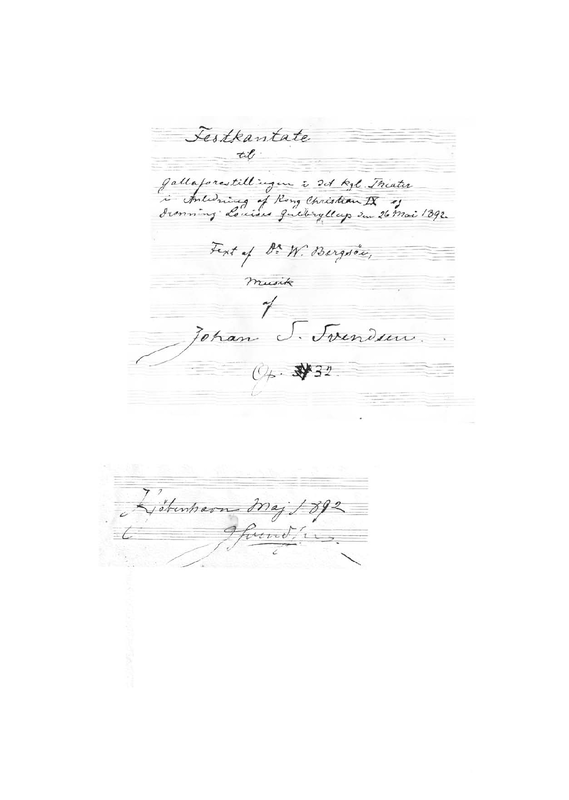 Festkantate
til
Gallaforestillingen i det kgl. Theater
i Anledning af Kong Christian IX og
Dronning Louises Guldbryllup den 26 Mai 1892.
Text af Dr. W. Bergsöe,
Musik
af
Johan S. Svendsen.
Op. 32.
Kőbenhavn Maj 1892
JSvendsen.